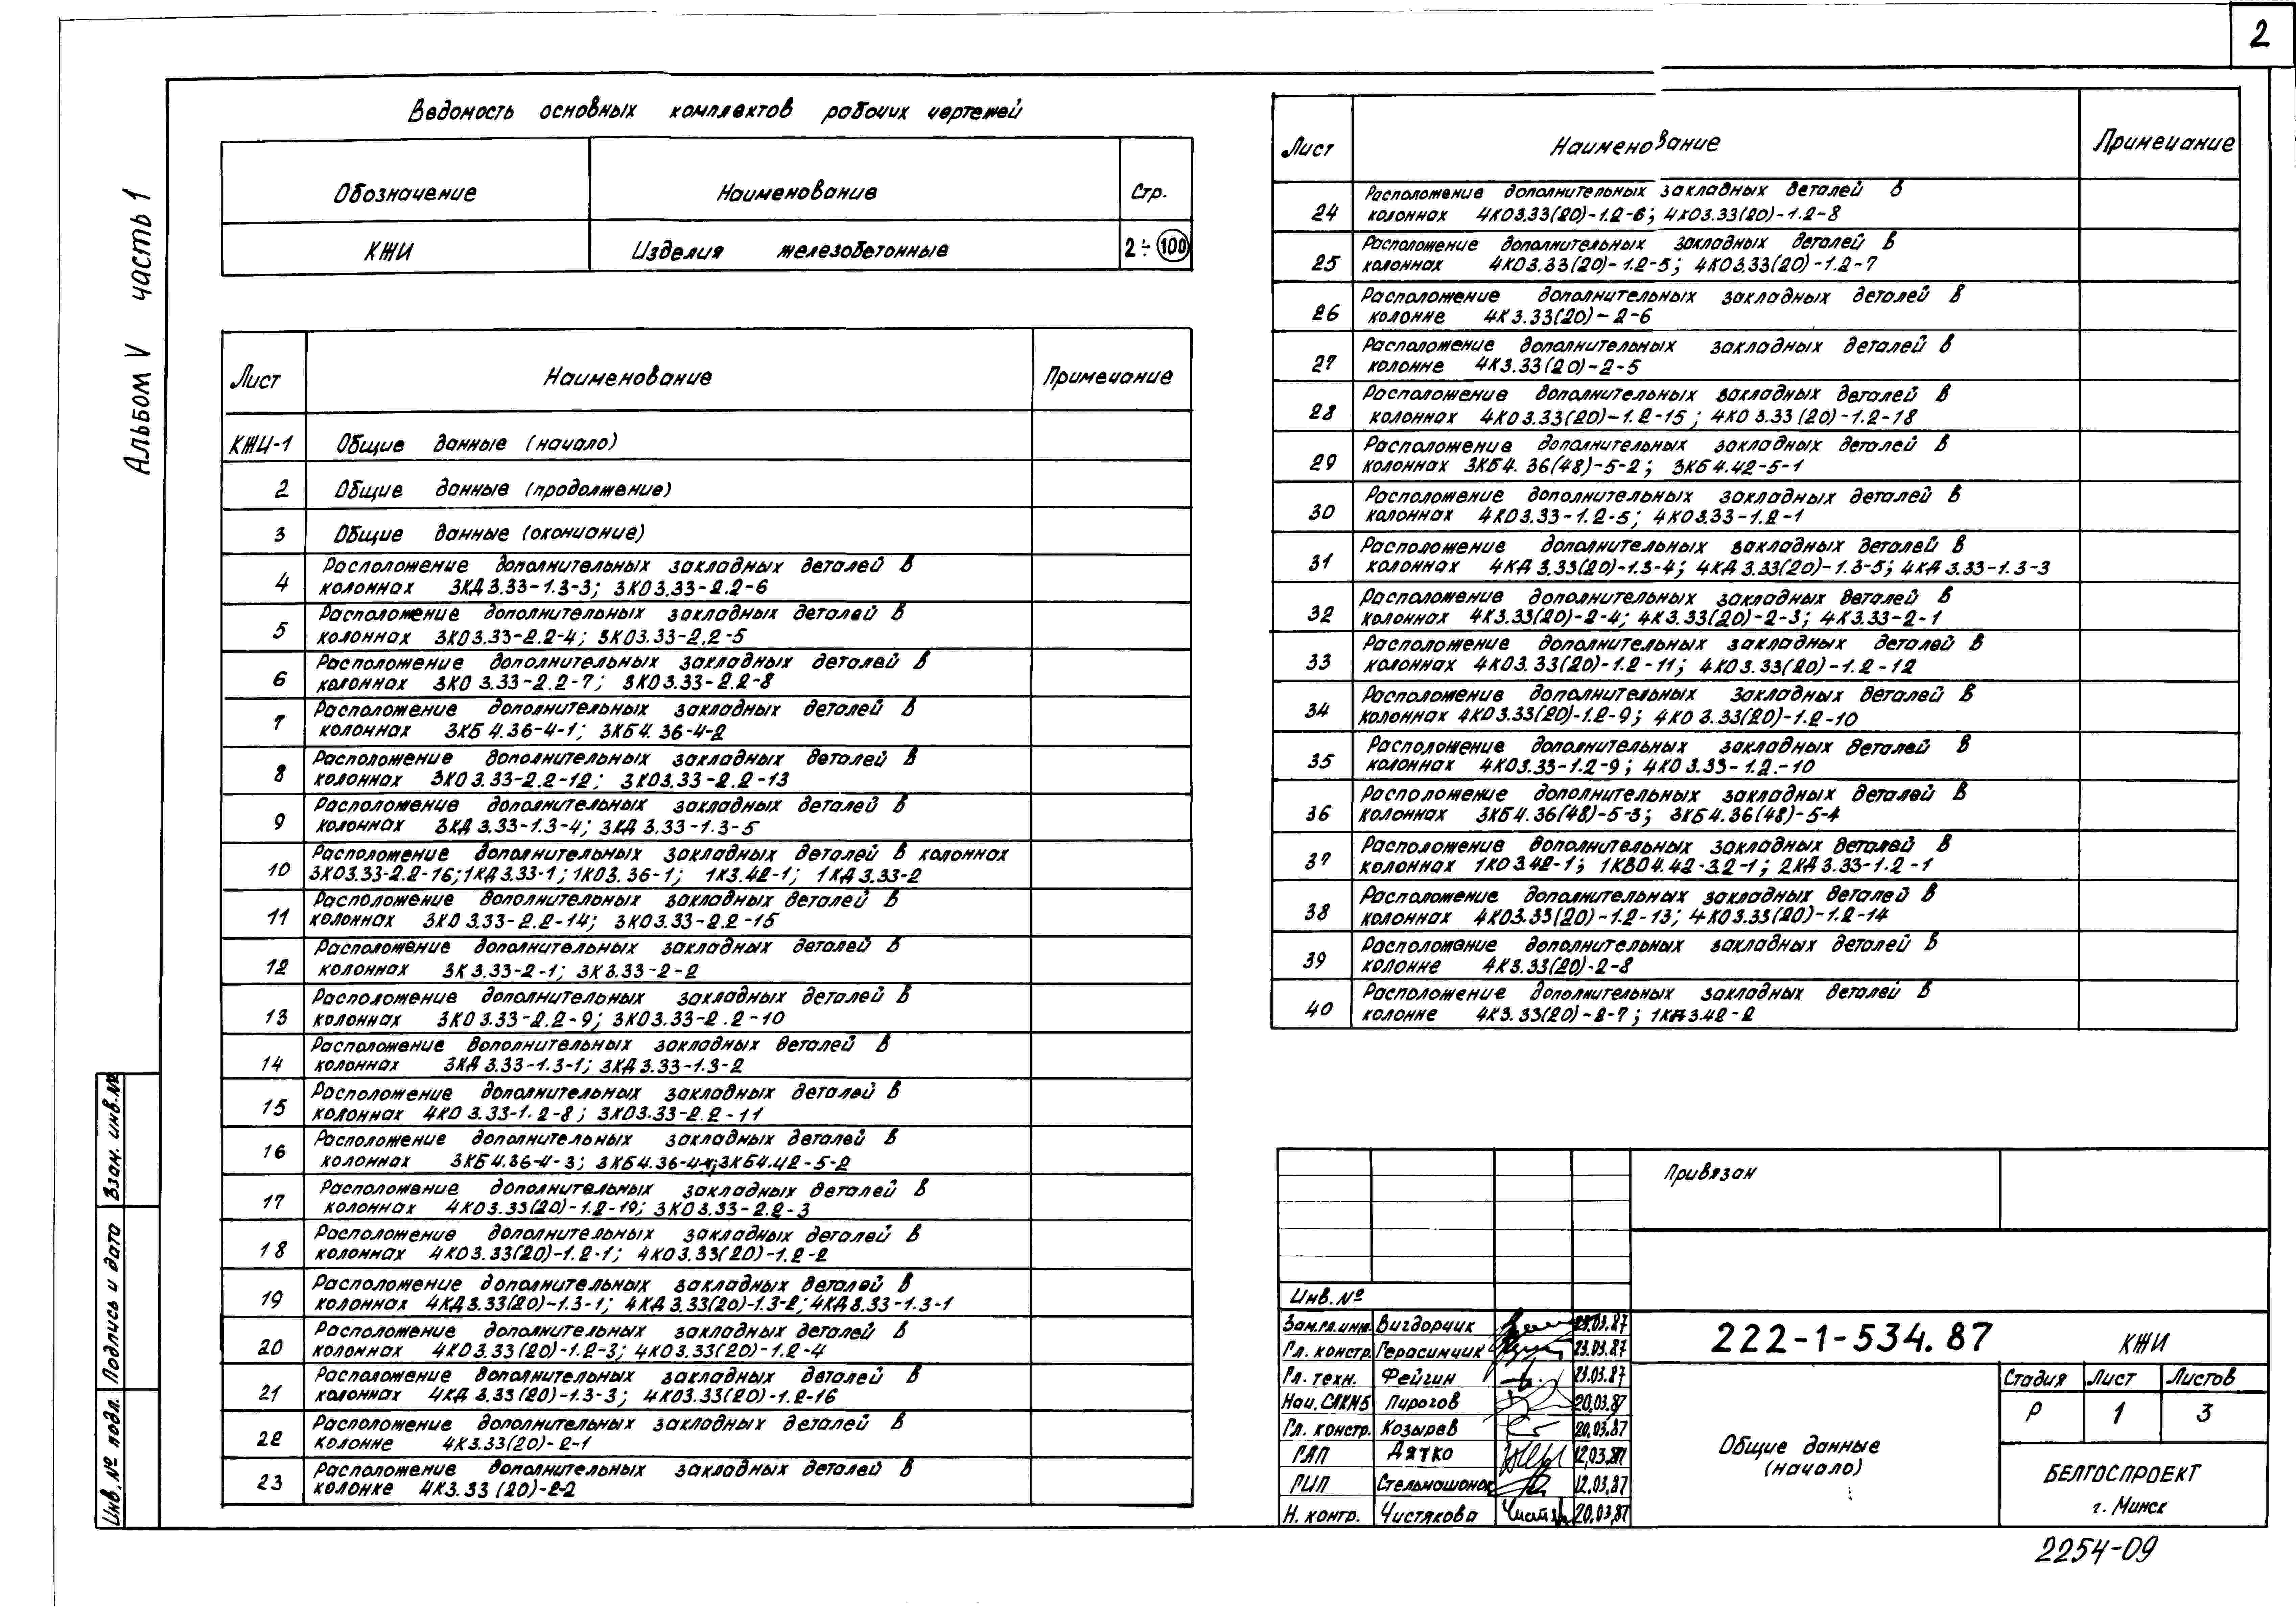 2
Альбом V часть 1
Ведомость основных комплектов рабочих чертежей
Обозначение Наименование Стр.
КЖИ Изделия железобетонные 2÷100
Лист Наименование Примечание
КЖИ-1 Общие данные (начало)
2 Общие данные (продолжение)
3 Общие данные (окончание)
4 Расположение дополнительных закладных деталей в
колоннах 3КД3.33-1.3-3; 3КО3.33-2.2-6
5 Расположение дополнительных закладных деталей в
колоннах 3КО3.33-2.2-4; 3КО3.33-2.2-5
6 Расположение дополнительных закладных деталей в
колоннах 3КО3.33-2.2-7; 3КО3.33-2.2-8
7 Расположение дополнительных закладных деталей в
колоннах 3КБ4.36-4-1; 3КБ4.36-4-2
8 Расположение дополнительных закладных деталей в
колоннах 3КО3.33-2.2-12; 3КО3.33-2.2-13
9 Расположение дополнительных закладных деталей в
колоннах 3КД3.33-1.3-4; 3КД3.33-1.3-5
10 Расположение дополнительных закладных деталей в колоннах
3КО3.33-2.2-16; 1КД3.33-1; 1КО3.36-1; 1К3.42-1; 1КД3.33-2
11 Расположение дополнительных закладных деталей в
колоннах 3КО3.33-2.2-14; 3КО3.33-2.2-15
12 Расположение дополнительных закладных деталей в
колоннах 3К3.33-2-1; 3К3.33-2-2
13 Расположение дополнительных закладных деталей в
колоннах 3КО3.33-2.2-9; 3КО3.33-2.2-10
14 Расположение дополнительных закладных деталей в
колоннах 3КД3.33-1.3-1; 3КД3.33-1.3-2
15 Расположение дополнительных закладных деталей в
колоннах 4КО3.33-1.2-8; 3КО3.33-2.2-11
16 Расположение дополнительных закладных деталей в
колоннах 3КБ4.36-4-3; 3КБ4.36-4-4; 3КБ4.42-5-2
17 Расположение дополнительных закладных деталей в
колоннах 4КО3.33(20)-1.2-19; 3КО3.33-2.2-3
18 Расположение дополнительных закладных деталей в
колоннах 4КО3.33(20)-1.2-1; 4КО3.33(20)-1.2-2
19 Расположение дополнительных закладных деталей в
колоннах 4КД3.33(20)-1.3-1; 4КД3.33(20)-1.3-2; 4КД3.33-1.3-1
20 Расположение дополнительных закладных деталей в
колоннах 4КО3.33(20)-1.2-3; 4КО3.33(20)-1.2-4
21 Расположение дополнительных закладных деталей в
колоннах 4КД3.33(20)-1.3-3; 4КО3.33(20)-1.2-16
22 Расположение дополнительных закладных деталей в
колонне 4К3.33(20)-2-1
23 Расположение дополнительных закладных деталей в
колонне 4К3.33(20)-2-2
Лист Наименование Примечание
24 Расположение дополнительных закладных деталей в
колоннах 4КО3.33(20)-1.2-6; 4КО3.33(20)-1.2-8
25 Расположение дополнительных закладных деталей в
колоннах 4КО3.33(20)-1.2-5; 4КО3.33(20)-1.2-7
26 Расположение дополнительных закладных деталей в
колонне 4К3.33(20)-2-6
27 Расположение дополнительных закладных деталей в
колонне 4К3.33(20)-2-5
28 Расположение дополнительных закладных деталей в
колоннах 4КО3.33(20)-1.2-15; 4КО3.33(20)-1.2-18
29 Расположение дополнительных закладных деталей в
колоннах 3КБ4.36(48)-5-2; 3КБ4.42-5-1
30 Расположение дополнительных закладных деталей в
колоннах 4КО3.33-1.2-5; 4КО3.33-1.2-1
31 Расположение дополнительных закладных деталей в
колоннах 4КД3.33(20)-1.3-4; 4КД3.33(20)-1.3-5; 4КД3.33-1.3-3
32 Расположение дополнительных закладных деталей в
колоннах 4К3.33(20)-2-4; 4К3.33(20)-2-3; 4К3.33-2-1
33 Расположение дополнительных закладных деталей в
колоннах 4КО3.33(20)-1.2-11; 4КО3.33(20)-1.2-12
34 Расположение дополнительных закладных деталей в
колоннах 4КО3.33(20)-1.2-9; 4КО3.33(20)-1.2-10
35 Расположение дополнительных закладных деталей в
колоннах 4КО3.33-1.2-9; 4КО3.33-1.2.-10
36 Расположение дополнительных закладных деталей в
колоннах 3КБ4.36(48)-5-3; 3КБ4.36(48)-5-4
37 Расположение дополнительных закладных деталей в
колоннах 1КО3.42-1; 1КВО4.42-3.2-1; 2КД3.33-1.2-1
38 Расположение дополнительных закладных деталей в
колоннах 4КО3.33(20)-1.2-13; 4КО3.33(20)-1.2-14
39 Расположение дополнительных закладных деталей в
колонне 4К3.33(20)-2-8
40 Расположение дополнительных закладных деталей в
колонне 4К3.33(20)-2-7; 1КД3.42-2
Привязан
Инв.№
Зам.гл.инж. Вигдорчик 23.03.87
Гл. констр. Герасимчик 23.03.87
Гл. техн. Фейгин 23.03.87
Нач. САКМ5 Пирогов 20.03.87
Гл. констр. Козырев 20.03.87
ГАП Дятко 12.03.87
ГИП Стельмашонок 12.03.87
Н. контр. Чистякова 20.03.87
222-1-534.87 КЖИ
Общие данные
(начало)
Стадия Лист Листов
Р 1 3
БЕЛГОСПРОЕКТ
г. Минск
2254-09
Инв.№ подл. Подпись и дата Взам. инв.№